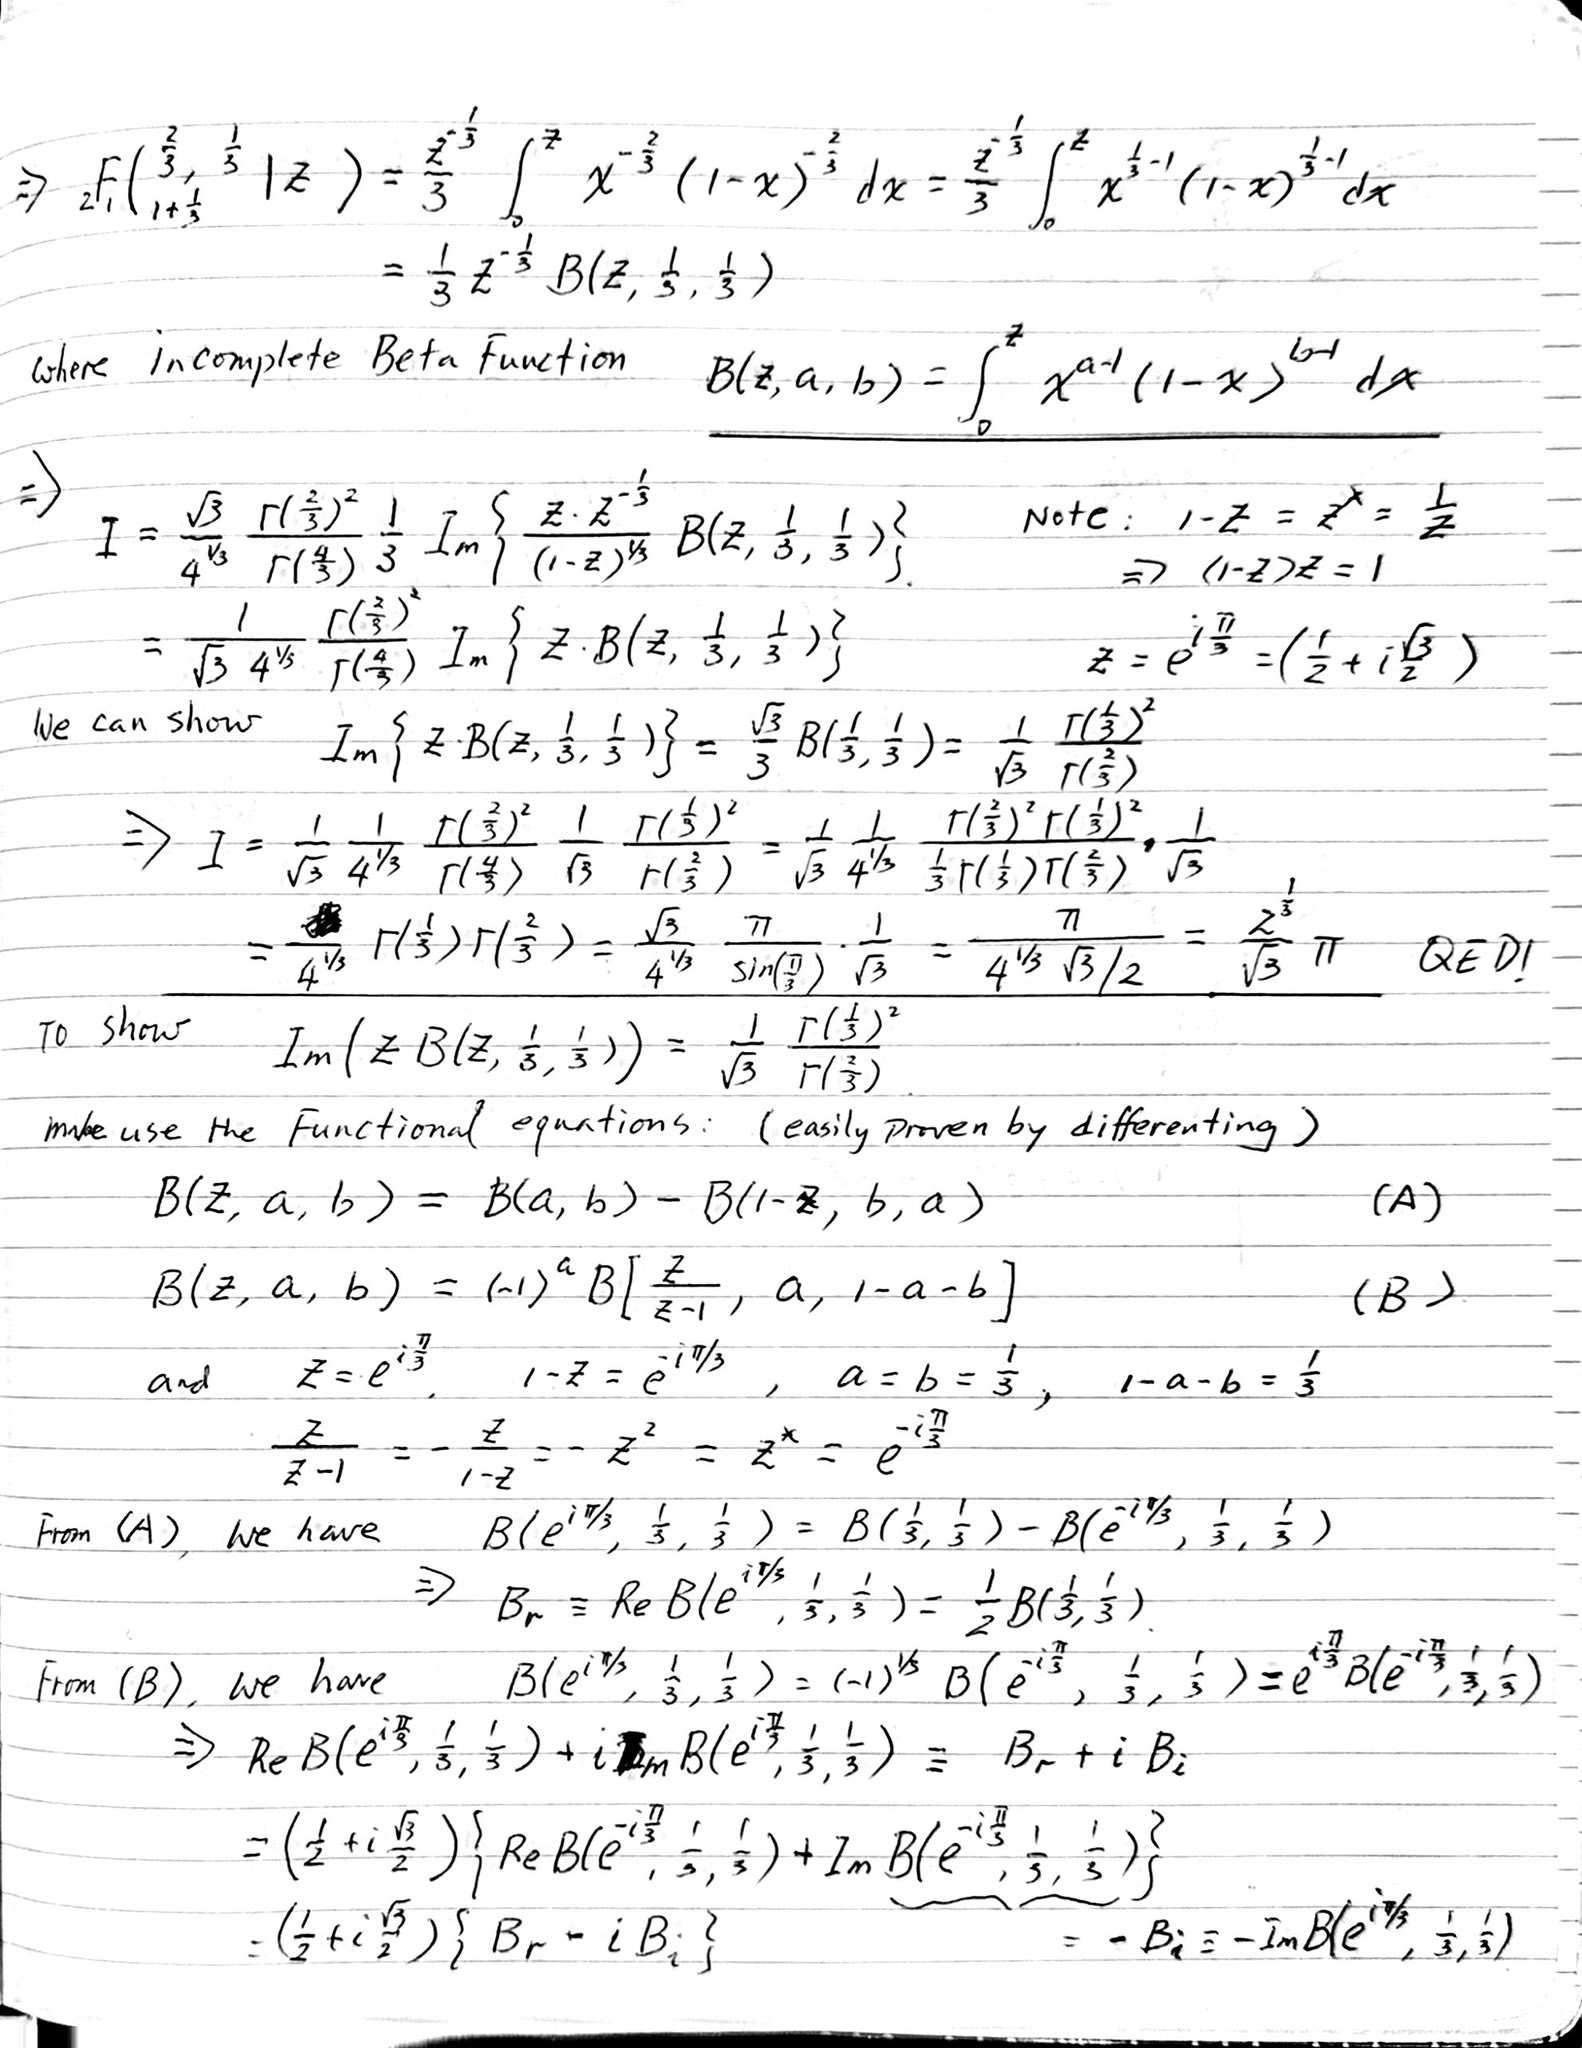 ⇒ ₂F₁(2/3, 1/3; 1+1/3 | z) = z^{-1/3}/3 ∫₀^z x^{-2/3} (1-x)^{-2/3} dx = z^{-1/3}/3 ∫₀^z x^{1/3-1} (1-x)^{1/3-1} dx
= 1/3 z^{-1/3} B(z, 1/3, 1/3)
where incomplete Beta Function B(z, a, b) = ∫₀^z x^{a-1} (1-x)^{b-1} dx
⇒
I = √3/4^{1/3} Γ(2/3)²/Γ(4/3) 1/3 Im{ z·z^{-1/3}/(1-z)^{1/3} B(z, 1/3, 1/3)}. Note: 1-z = z* = 1/z
⇒ (1-z)z = 1
= 1/(√3 4^{1/3}) Γ(2/3)²/Γ(4/3) Im{ z·B(z, 1/3, 1/3)} z = e^{iπ/3} = (1/2 + i√3/2)
We can show Im{ z·B(z, 1/3, 1/3)} = √3/3 B(1/3, 1/3) = 1/√3 Γ(1/3)²/Γ(2/3)
⇒ I = 1/√3 1/4^{1/3} Γ(2/3)²/Γ(4/3) 1/√3 Γ(1/3)²/Γ(2/3) = 1/√3 1/4^{1/3} Γ(2/3)²Γ(1/3)²/(1/3 Γ(1/3)Γ(2/3)) · 1/√3
= /4^{1/3} Γ(1/3)Γ(2/3) = √3/4^{1/3} π/sin(π/3) · 1/√3 = π/(4^{1/3} √3/2) = 2^{1/3}/√3 π QED!
To show Im(z B(z, 1/3, 1/3)) = 1/√3 Γ(1/3)²/Γ(2/3)
make use the Functional equations: (easily proven by differenting)
B(z, a, b) = B(a, b) - B(1-z, b, a) (A)
B(z, a, b) = (-1)^a B[z/(z-1), a, 1-a-b] (B)
and z = e^{iπ/3}, 1-z = e^{-iπ/3}, a = b = 1/3, 1-a-b = 1/3
z/(z-1) = - z/(1-z) = - z² = z* = e^{-iπ/3}
From (A), we have B(e^{iπ/3}, 1/3, 1/3) = B(1/3, 1/3) - B(e^{-iπ/3}, 1/3, 1/3)
⇒ B_r ≡ Re B(e^{iπ/3}, 1/3, 1/3) = 1/2 B(1/3, 1/3).
From (B), we have B(e^{iπ/3}, 1/3, 1/3) = (-1)^{1/3} B(e^{-iπ/3}, 1/3, 1/3) = e^{iπ/3} B(e^{-iπ/3}, 1/3, 1/3)
⇒ Re B(e^{iπ/3}, 1/3, 1/3) + i Im B(e^{iπ/3}, 1/3, 1/3) ≡ B_r + i B_i
= (1/2 + i√3/2){Re B(e^{-iπ/3}, 1/3, 1/3) + Im B(e^{-iπ/3}, 1/3, 1/3)}
= (1/2 + i√3/2){B_r - i B_i} = - B_i ≡ -Im B(e^{iπ/3}, 1/3, 1/3)